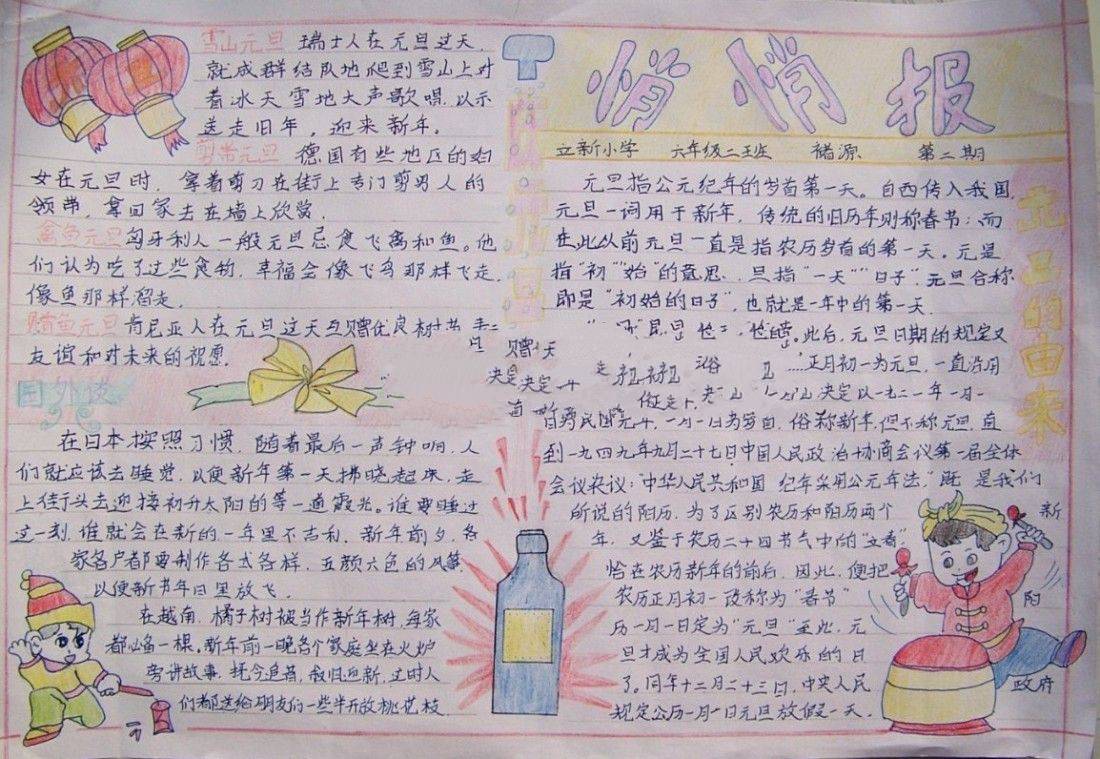 悄悄报
立新小学 六年级二班 褚源 第二期
元旦的由来
元旦指公元纪年的岁首第一天。自西传入我国,
元旦一词用于新年,传统的旧历年则称春节:而
在此以前元旦一直是指农历岁首的第一天。元是
指“初”“始”的意思.旦指“一天”“日子”元旦合称
即是“初始的日子”,也就是一年中的第一天
此后,元旦日期的规定又
正月初一为元旦,一直沿用
决定以一九二一年一月一
一月一日为岁首,俗称新年,但不称元旦,直
到一九四九年九月二十七日中国人民政治协商会议第一届全体
会议决议:“中华人民共和国 纪年采用公元年法,”既 是我们
所说的阳历.为了区别农历和阳历两个 新
年,又鉴于农历二十四节气中的“立春”
恰在农历新年的前后,因此,便把
农历正月初一改称为“春节” 阳
历一月一日定为“元旦”至此,元
旦才成为全国人民欢乐的日
了。同年十二月二十三日,中央人民 政府
规定公历一月一日元旦放假一天。
雪山元旦 瑞士人在元旦过天,
就成群结队地爬到雪山上对
着冰天雪地大声歌唱.以示
送走旧年,迎来新年。
剪带元旦 德国有些地区的妇
女在元旦时,拿着剪刀在街上专门剪男人的
领带,拿回家去在墙上欣赏.
禽鱼元旦 匈牙利人一般元旦忌食飞禽和鱼。他
们认为吃了这些食物,幸福会像飞鸟那样飞走,
像鱼那样溜走.
肯尼亚人在元旦这天互赠优良树
友谊和对未来的祝愿.
赠
决定 决定
国外
在日本按照习惯,随着最后一声钟响,人
们就应该去睡觉,以便新年第一天拂晓起床,走
上街头去迎接初升太阳的第一道霞光。谁要睡过
这一刻,谁就会在新的一年里不吉利,新年前夕,各
家各户都要制作各式各样,五颜六色的风筝
以便新年日里放飞.
在越南,橘子树被当作新年树,每家
都必备一棵,新年前一晚各个家庭坐在火炉
旁讲故事,抚今追昔,叙旧迎新,这时人
们都送给朋友们一些半开放桃花枝.